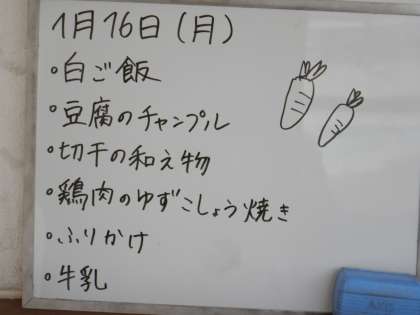 1月16日(月)
・白ご飯
・豆腐のチャンプル
・切干の和え物
・鶏肉のゆずこしょう焼き
・ふりかけ
・牛乳